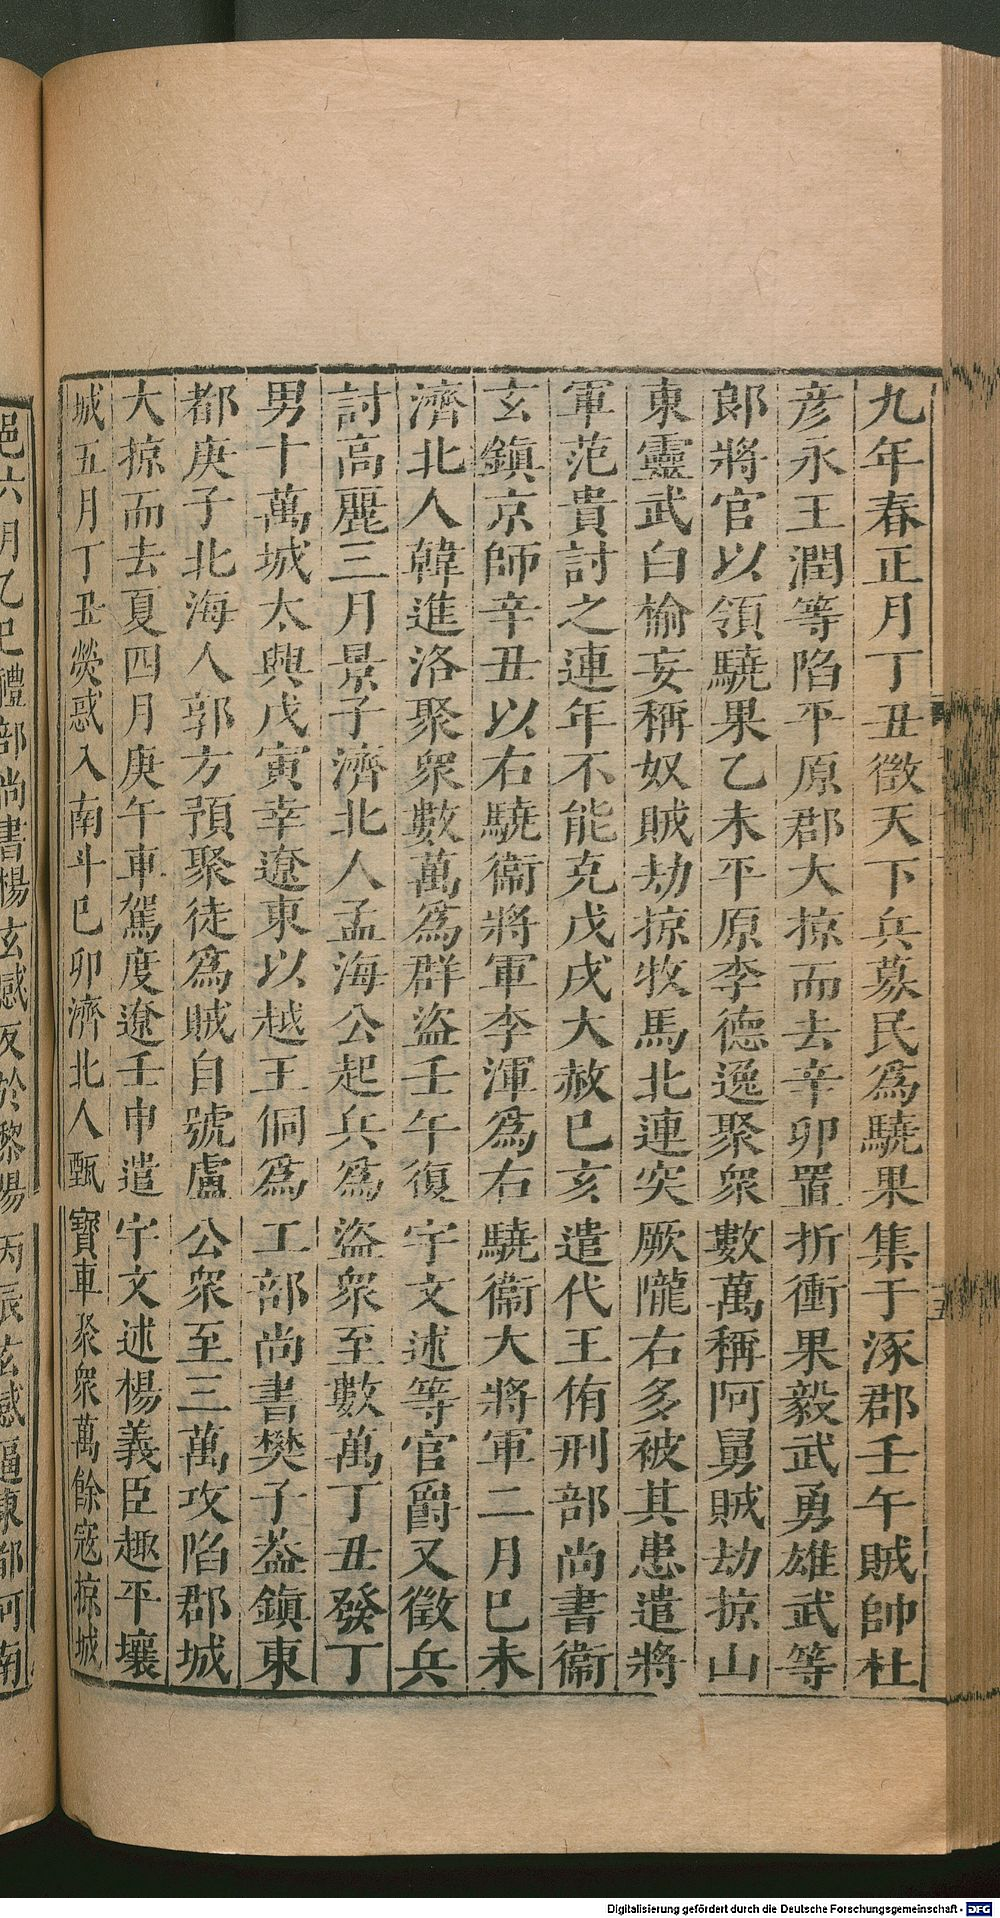 九年春正月丁丑徵天下兵募民爲驍果集于涿郡壬午賊帥杜
彦永王潤等陷平原郡大掠而去辛卯置折衝果毅武勇雄武等
郎將官以領驍果乙未平原李德逸聚衆數萬稱阿舅賊劫掠山
東靈武白榆妄稱奴賊劫掠牧馬北連突厥隴右多被其患遣將
軍范貴討之連年不能克戊戌大赦已亥遣代王侑刑部尚書衞
玄鎭京師辛丑以右驍衞將軍李渾爲右驍衞大將軍二月巳未
濟北人韓進洛聚衆數萬爲群盜壬午復宇文述等官爵又徵兵
討高麗三月景子濟北人孟海公起兵爲盜衆至數萬丁丑發丁
男十萬城大興戊寅幸遼東以越王侗爲工部尚書樊子葢鎭東
都庚子北海人郭方預聚徒爲賊自號盧公衆至三萬攻陷郡城
大掠而去夏四月庚午車駕度遼壬申遣宇文述楊義臣趣平壤
城五月丁丑熒惑入南斗巳卯濟北人甄寶車聚衆萬餘寇掠城
邑六月乙巳禮部尚書楊玄感反於黎陽丙辰玄感逼東都河南
Digitalisierung gefördert durch die Deutsche Forschungsgemeinschaft - DFG